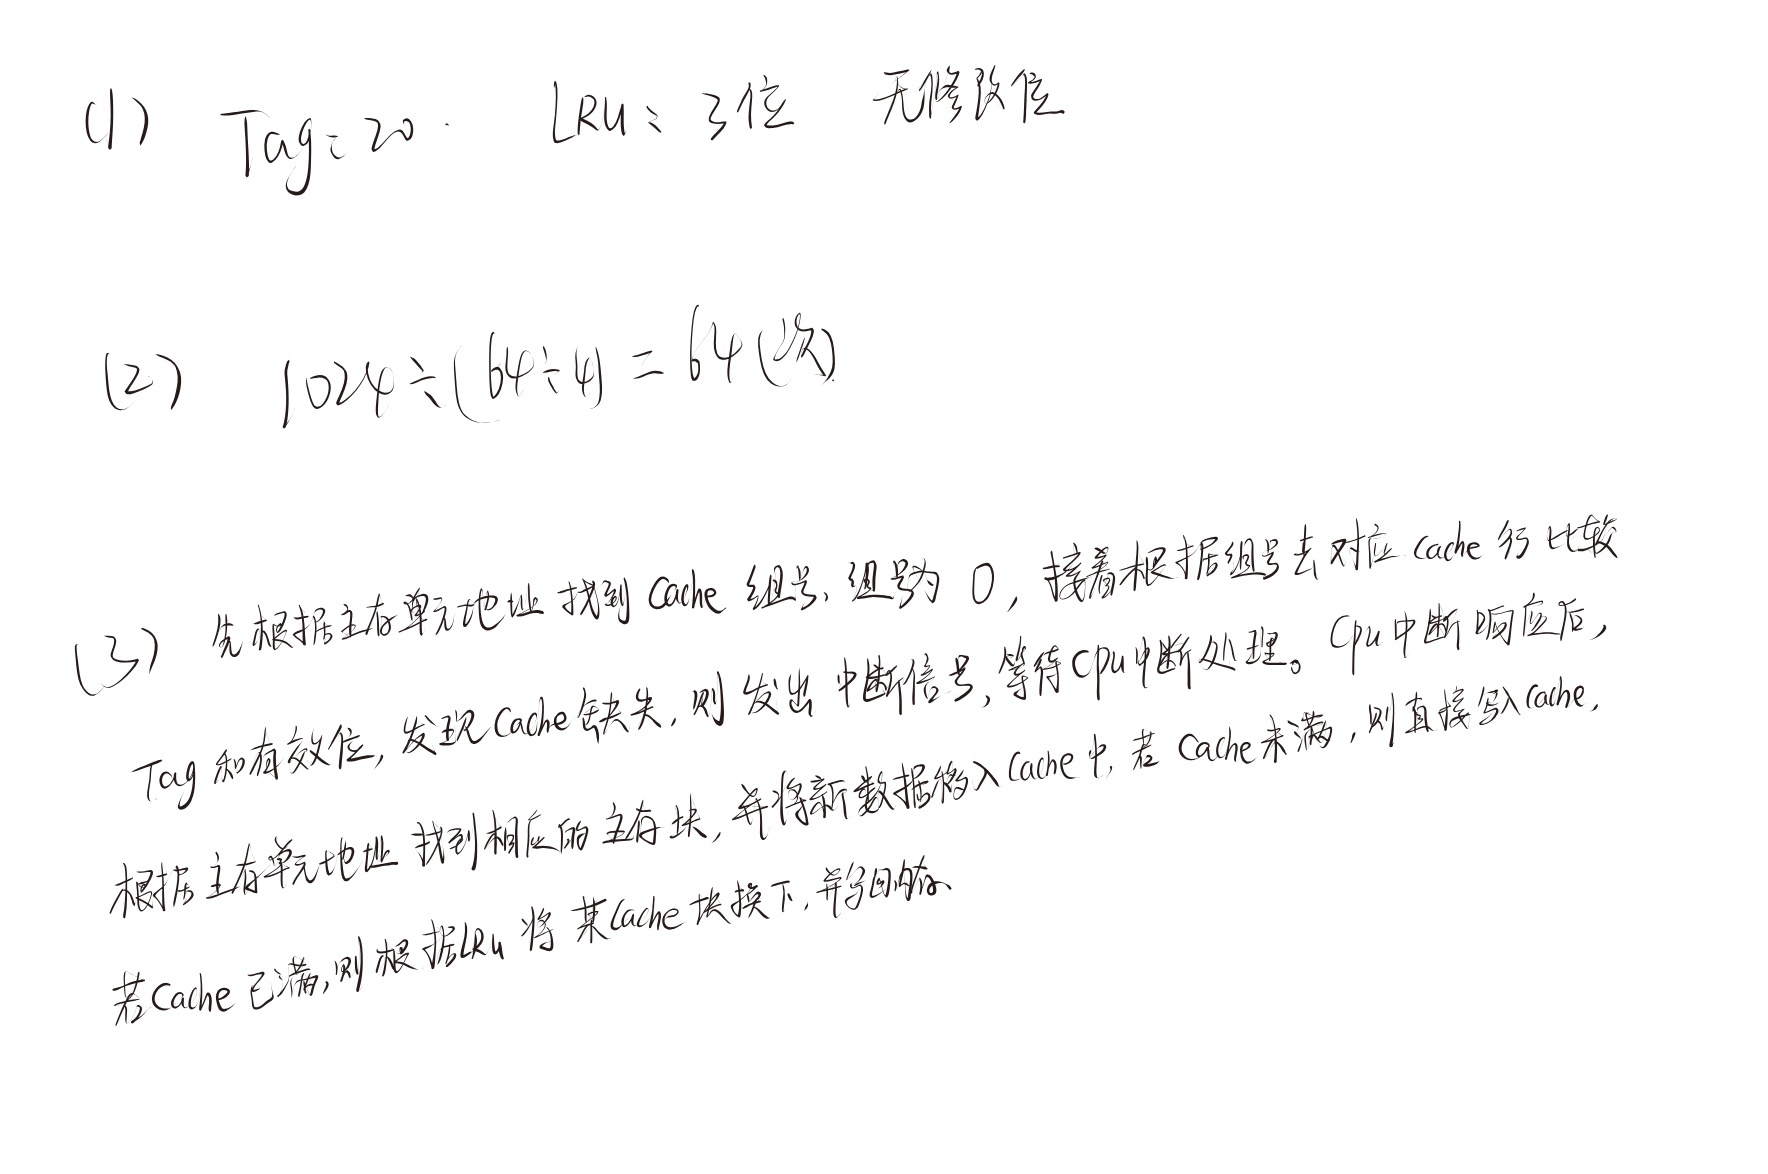 (1) Tag: 20. LRU: 3位 无修改位
(2) 1024÷(64÷4)=64(次)
(3) 先根据主存单元地址找到Cache 组号,组号为 0, 接着根据组号去对应Cache行比较
Tag和有效位,发现Cache缺失,则发出中断信号,等待Cpu中断处理。Cpu中断响应后,
根据主存单元地址找到相应的主存块,并将新数据移入Cache中,若Cache未满,则直接写入Cache,
若Cache已满,则根据LRU将某Cache块换下,并写回内存、